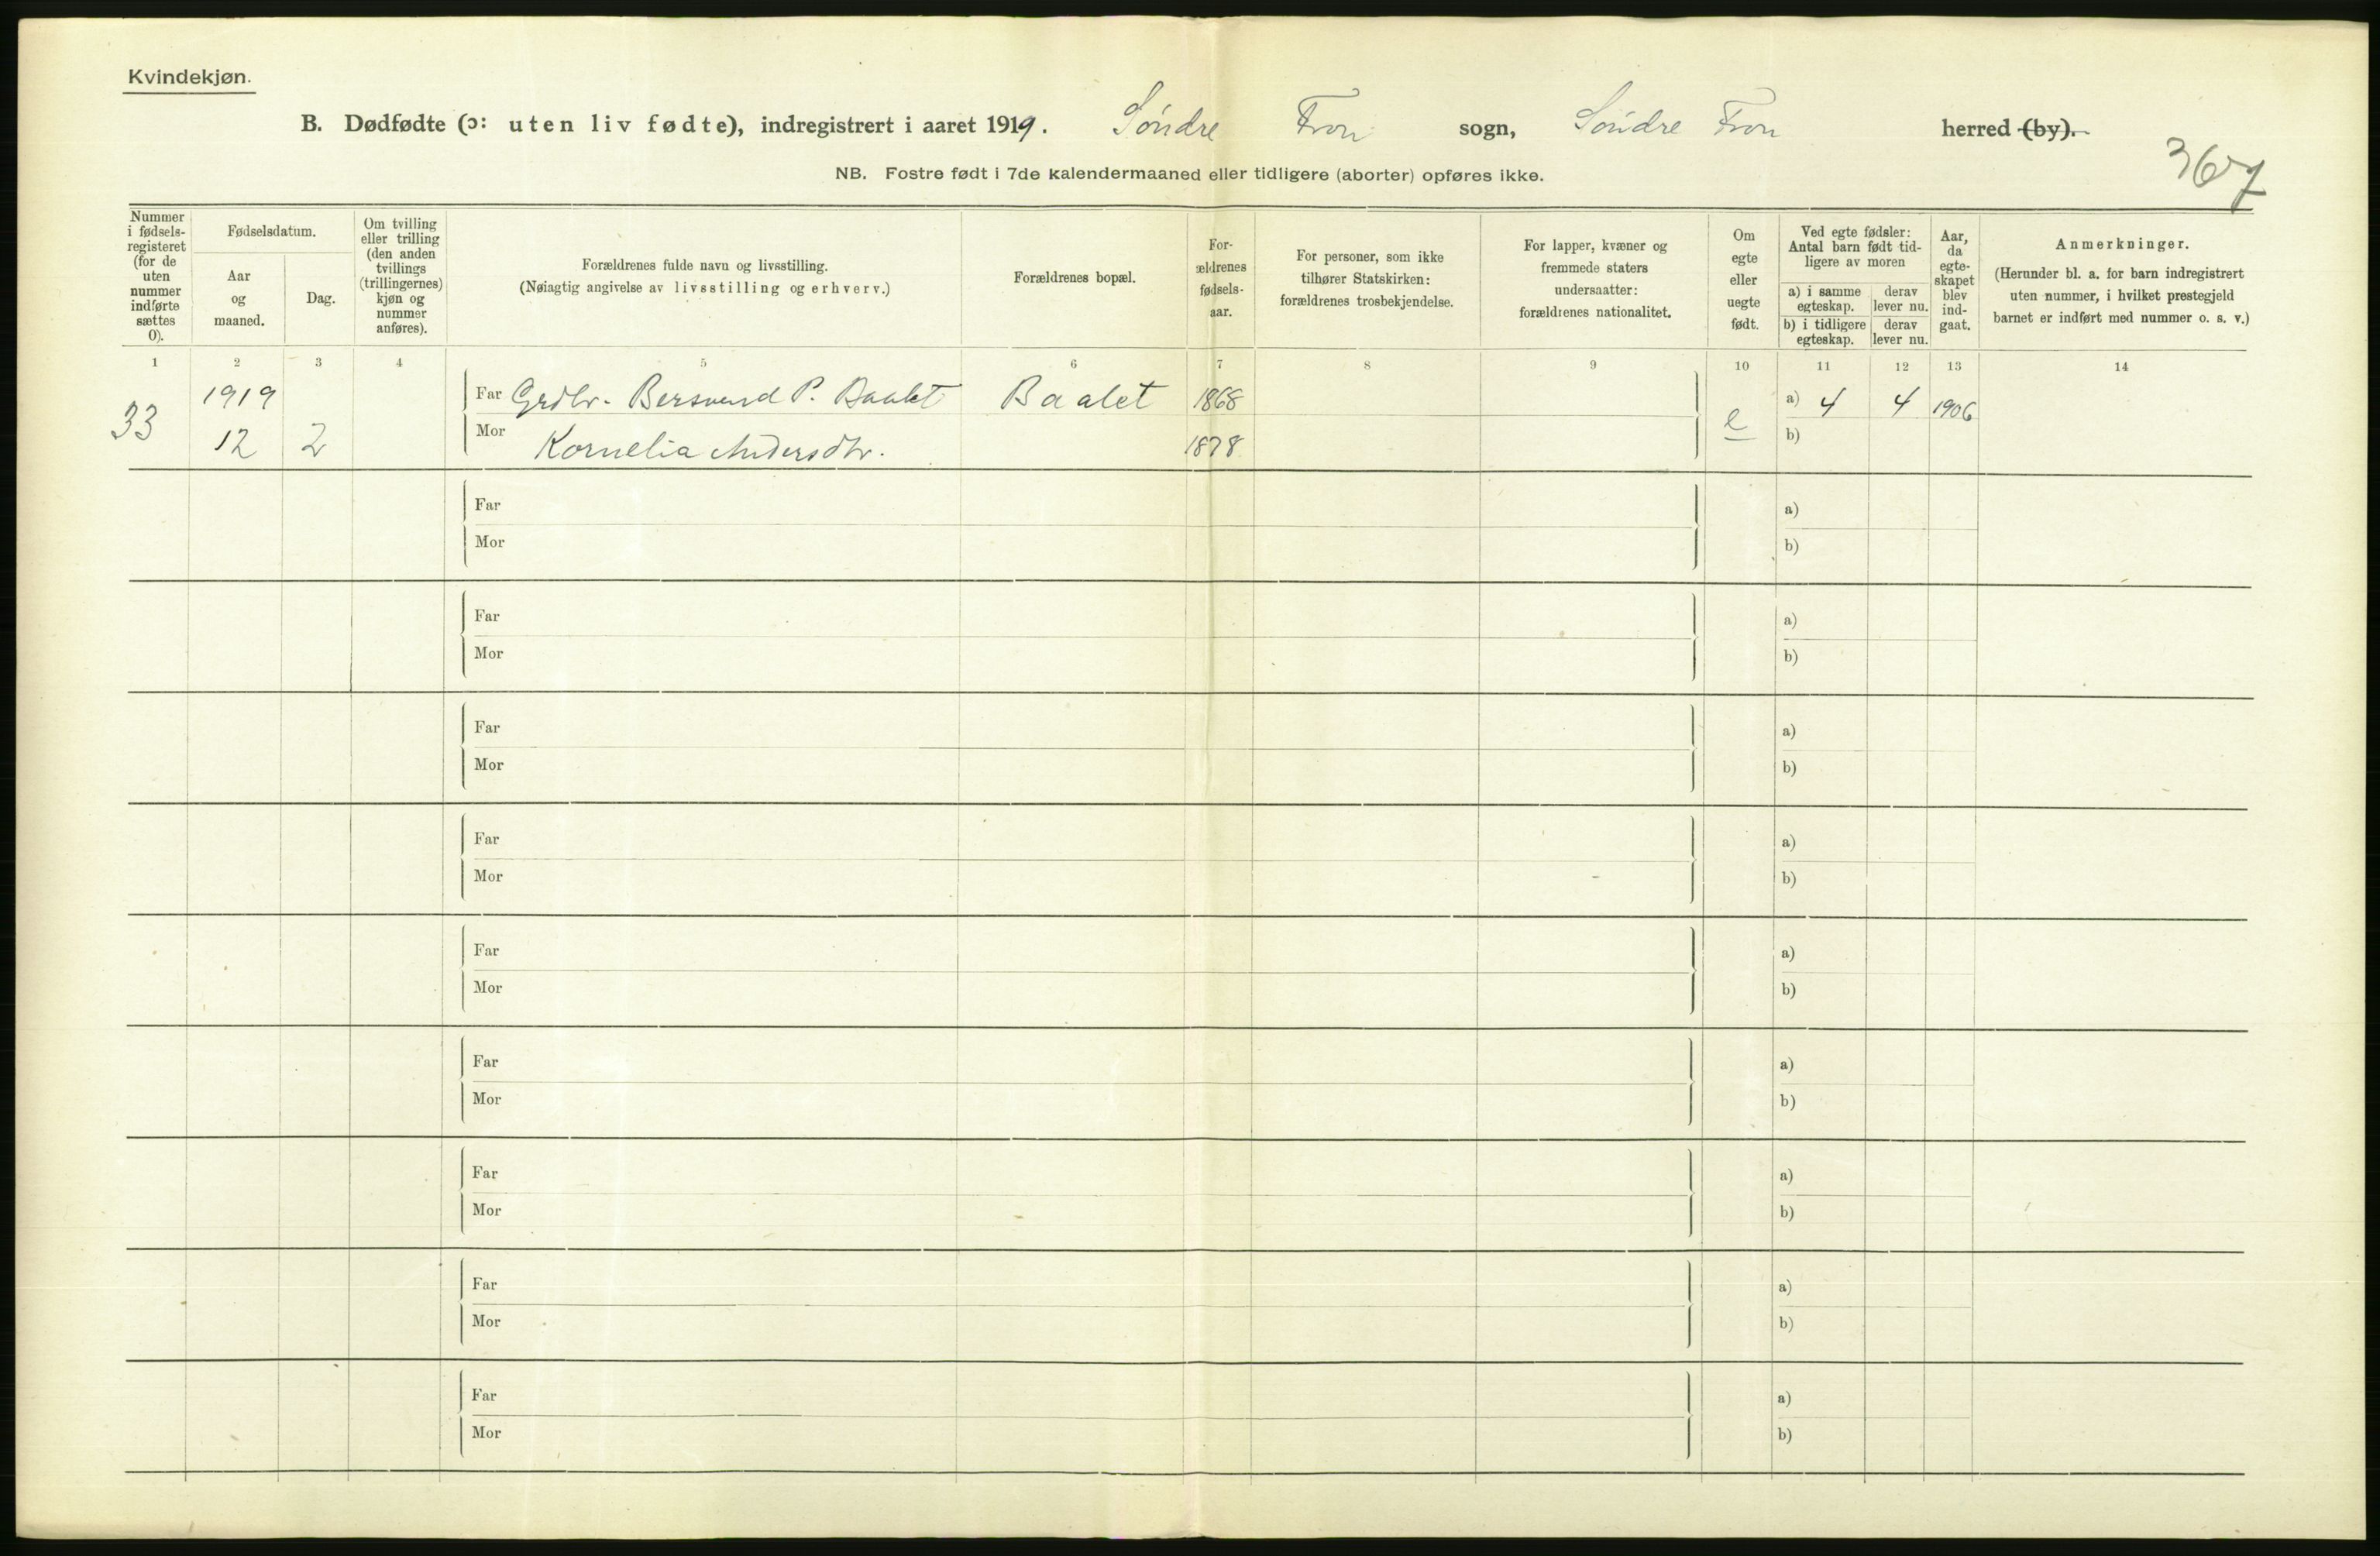 Kvindekjøn.
B. Dødfødte (ɔ: uten liv fødte), indregistrert i aaret 1919. Söndre Fron sogn, Söndre Fron herred (by).
367
NB. Fostre født i 7de kalendermaaned eller tidligere (aborter) opføres ikke.
Nummer i fødsels-registeret (for de uten nummer indførte sættes 0).
Fødselsdatum.
Aar og maaned.
Dag.
Om tvilling eller trilling (den anden tvillings (trillingernes) kjøn og nummer anføres).
Forældrenes fulde navn og livsstilling.
(Nøiagtig angivelse av livsstilling og erhverv.)
Forældrenes bopæl.
For-ældrenes fødsels-aar.
For personer, som ikke tilhører Statskirken: forældrenes trosbekjendelse.
For lapper, kvæner og fremmede staters undersaatter: forældrenes nationalitet.
Om egte eller uegte født.
Ved egte fødsler: Antal barn født tid-ligere av moren
a) i samme egteskap.
derav lever nu.
b) i tidligere egteskap.
derav lever nu.
Aar, da egte-skapet blev ind-gaat.
Anmerkninger.
(Herunder bl. a. for barn indregistrert uten nummer, i hvilket prestegjeld barnet er indført med nummer o. s. v.)
1 2 3 4 5 6 7 8 9 10 11 12 13 14
33 1919 Far Grdbr. Bersvend P. Baalet Baalet 1868 e a) 4 4 1906
12 2 Mor Kornelia Andersdtr. 1878 b)
Far a)
Mor b)
Far a)
Mor b)
Far a)
Mor b)
Far a)
Mor b)
Far a)
Mor b)
Far a)
Mor b)
Far a)
Mor b)
Far a)
Mor b)
Far a)
Mor b)